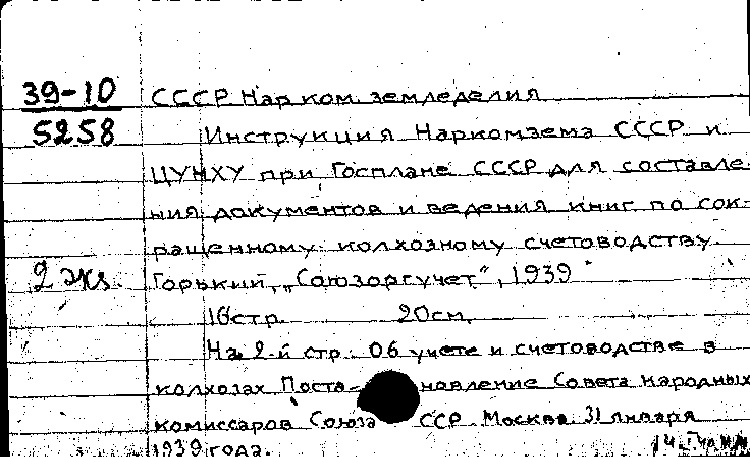 39-10 СССР. Нар. ком. земледелия
5258 Инструкция Наркомзема СССР и
ЦУНХУ при Госплане СССР для составле-
ния документов и ведения книг по сок-
ращенному колхозному счетоводству.
2 экз. Горький, „Союзоргучет", 1939
16 стр. 20 см.
На 2-й стр.: Об учете и счетоводстве в
колхозах Поста-новление Совета народных
комиссаров Союза ССР. Москва 31 января
1939 года.